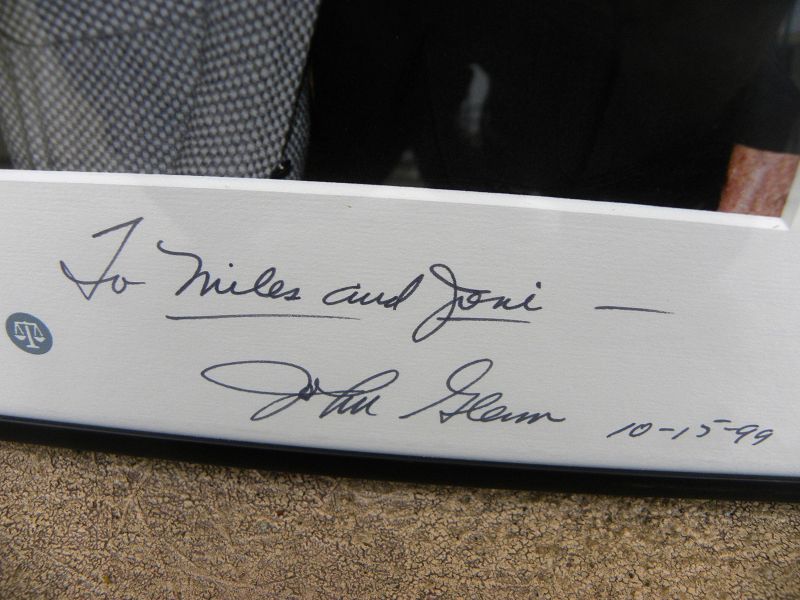 To Miles and Joni —
John Glenn 10-15-99